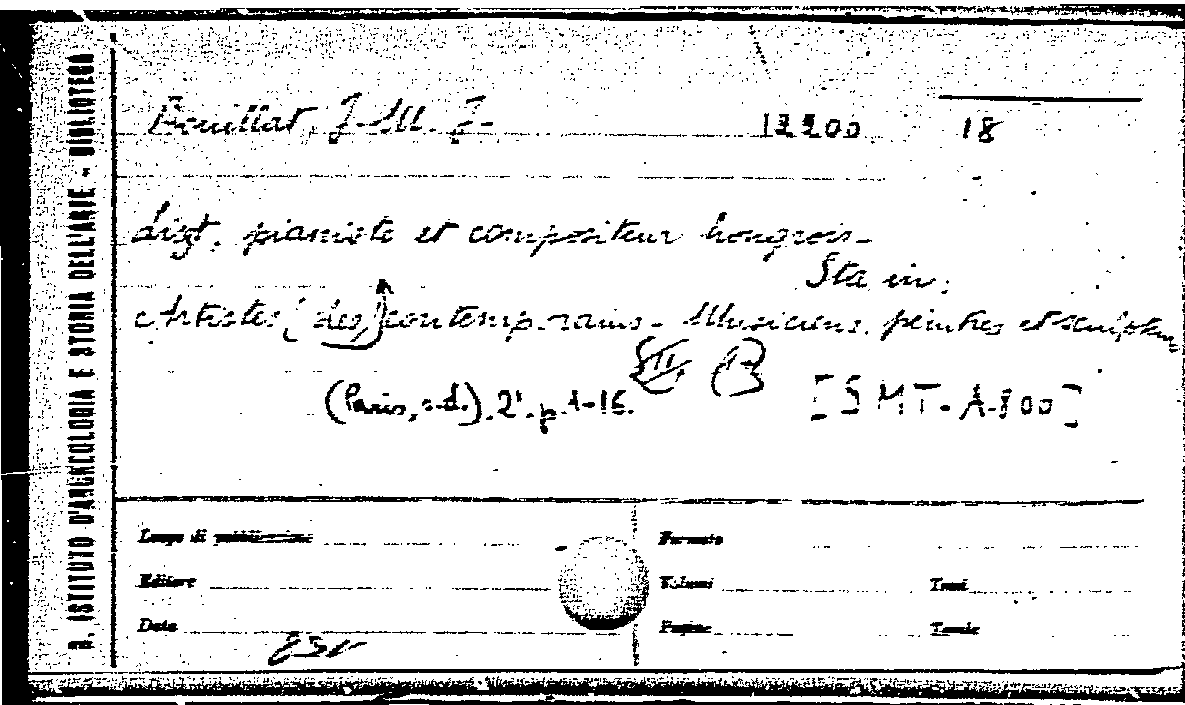 R. ISTITUTO D'ARCHEOLOGIA E STORIA DELL'ARTE - BIBLIOTECA
Bouillat, J.-M. J. 12200 18
Liszt, pianiste et compositeur hongrois.
Sta in:
Artistes (des) contemporains. Musiciens, peintres et sculpteurs
(Paris, s.d.), 2°. p. 1-16. [SMT. A. 800]
Luogo di pubblicazione Formato
Editore Volumi Tomi
Data Pagine Tavole